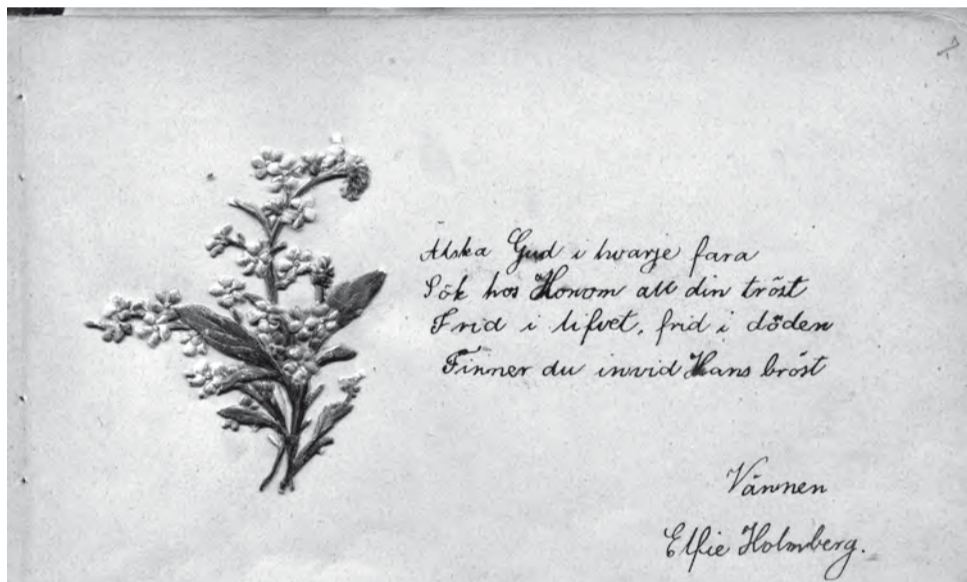 Älska Gud i hwarje fara
Sök hos Honom all din tröst
Frid i lifvet, frid i döden
Finner du invid Hans bröst
Vännen
Elfie Holmberg.